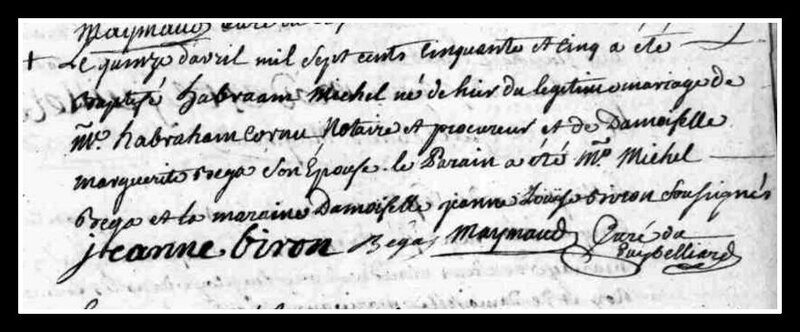 Maymaud Curé du
Le quinze d'avril mil sept cents cinquante et cinq a été
Baptisé habraam Michel né de hier du legitime mariage de
Mre. habraham Cornu Notaire et procureur et de Damoiselle
marguerite Bega son Épouse. le Parain a été Mre Michel
Bega et la maraine Damoiselle jeanne Louise Biron Soussignés
jeanne biron Bega Maymaud Curé du
Puybelliard